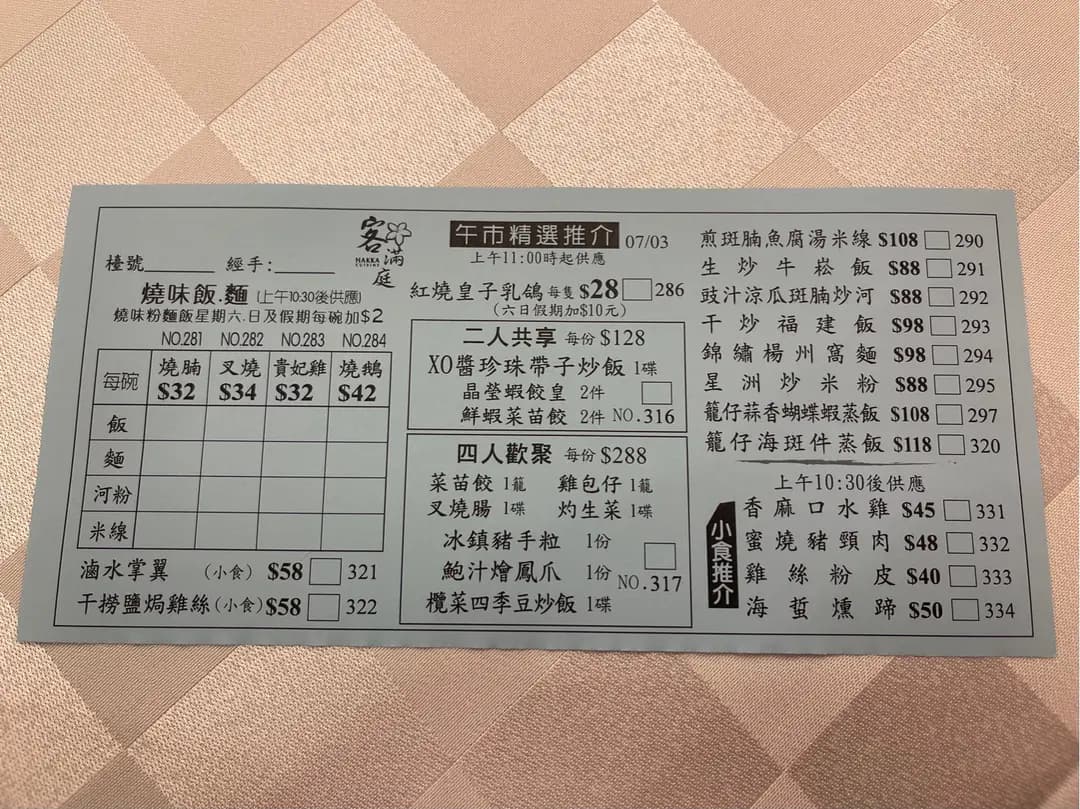 檯號______ 經手:______
客滿庭
HAKKA
CUISINE
燒味飯.麵 (上午10:30後供應)
燒味粉麵飯星期六.日及假期每碗加$2
NO.281 NO.282 NO.283 NO.284
每碗 燒腩 叉燒 貴妃雞 燒鵝
$32 $34 $32 $42
飯
麵
河粉
米線
滷水掌翼 (小食) $58 321
干撈鹽焗雞絲(小食) $58 322
午市精選推介 07/03
上午11:00時起供應
紅燒皇子乳鴿 每隻 $28 286
(六日假期加$10元)
二人共享 每份 $128
XO醬珍珠帶子炒飯 1碟
晶瑩蝦餃皇 2件
鮮蝦菜苗餃 2件 NO.316
四人歡聚 每份 $288
菜苗餃 1籠 雞包仔 1籠
叉燒腸 1碟 灼生菜 1碟
冰鎮豬手粒 1份
鮑汁燴鳳爪 1份 NO.317
欖菜四季豆炒飯 1碟
煎斑腩魚腐湯米線 $108 290
生炒牛崧飯 $88 291
豉汁涼瓜斑腩炒河 $88 292
干炒福建飯 $98 293
錦繡楊州窩麵 $98 294
星洲炒米粉 $88 295
籠仔蒜香蝴蝶蝦蒸飯 $108 297
籠仔海斑件蒸飯 $118 320
上午10:30後供應
小食推介
香麻口水雞 $45 331
蜜燒豬頸肉 $48 332
雞絲粉皮 $40 333
海蜇燻蹄 $50 334